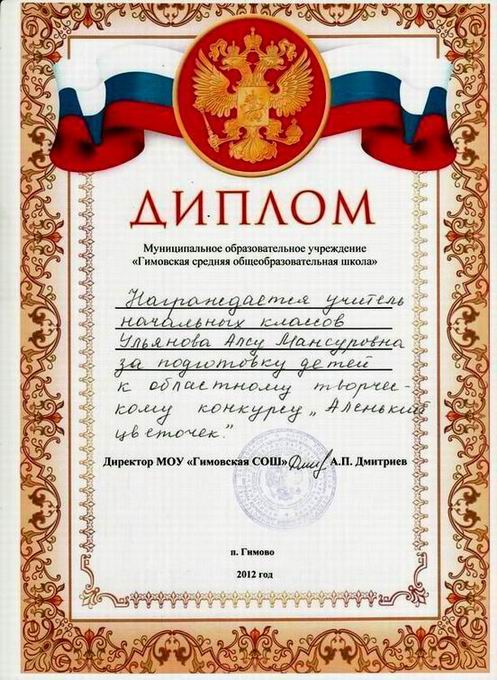 ДИПЛОМ
Муниципальное образовательное учреждение
«Гимовская средняя общеобразовательная школа»
Награждается учитель
начальных классов
Ульянова Алсу Мансуровна
за подготовку детей
к областному творчес-
кому конкурсу „Аленький
цветочек".
Директор МОУ «Гимовская СОШ» А.П. Дмитриев
п. Гимово
2012 год